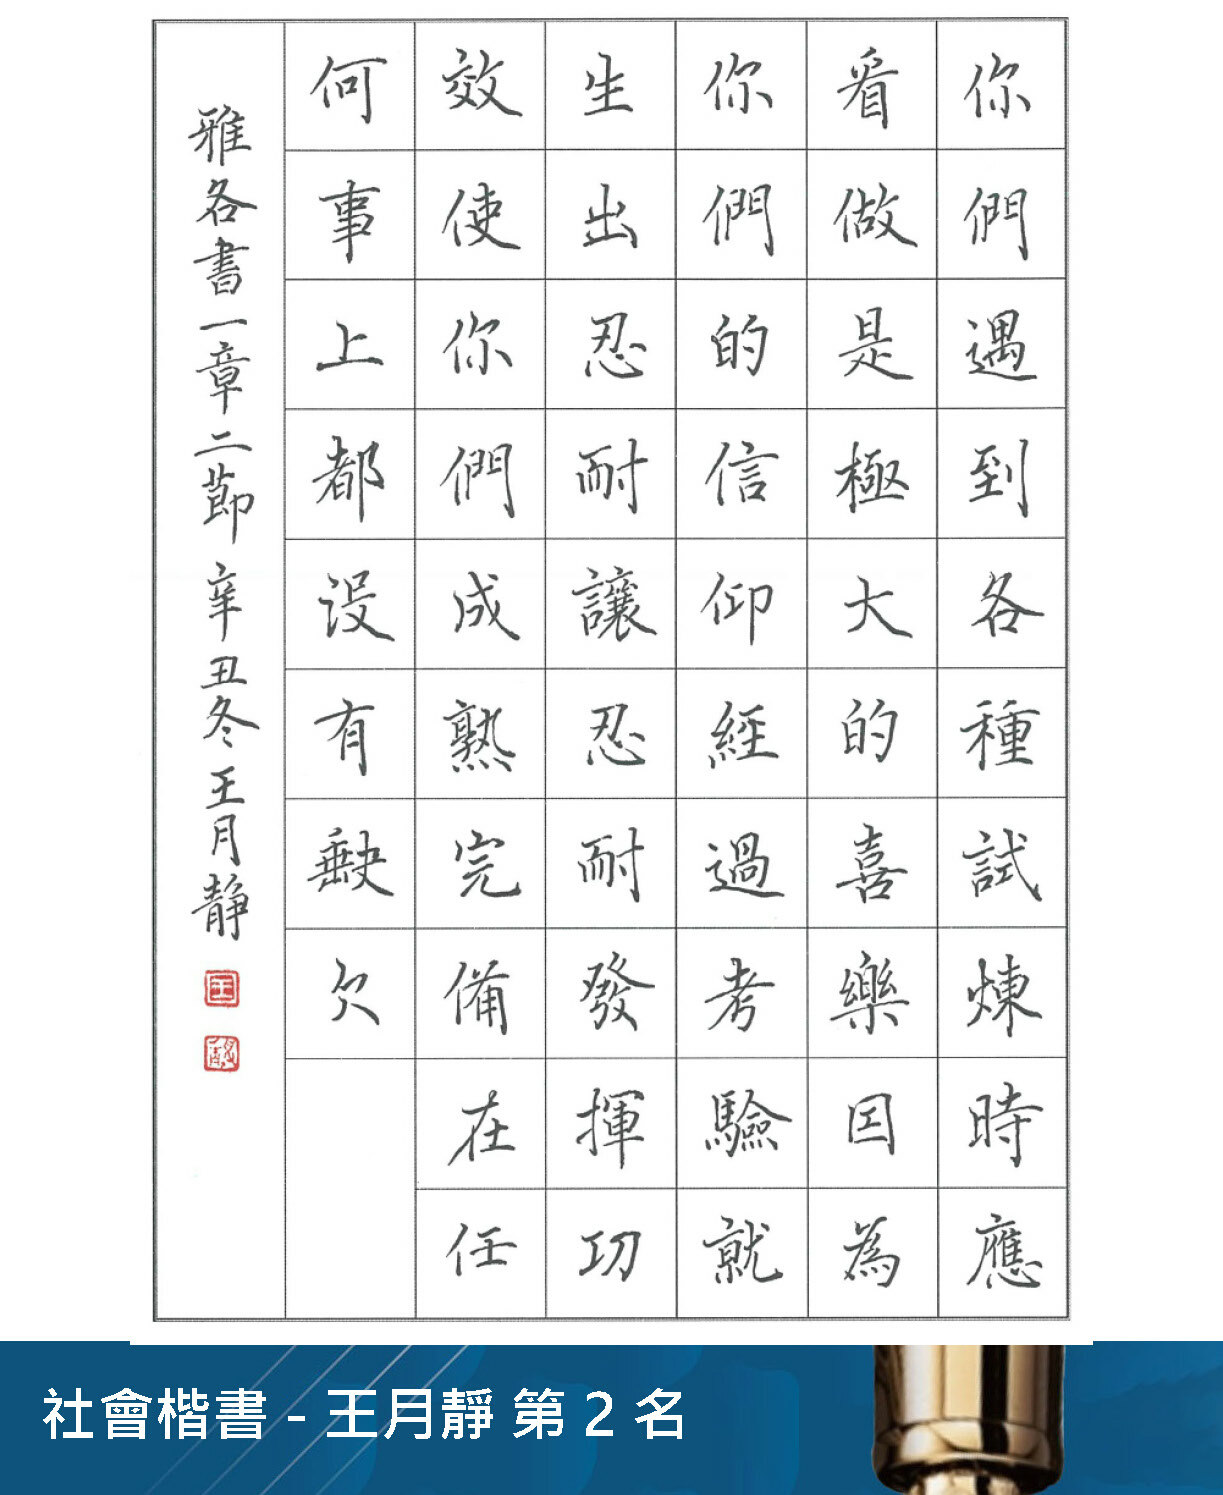 你們遇到各種試煉時應
看做是極大的喜樂因為
你們的信仰經過考驗就
生出忍耐讓忍耐發揮功
效使你們成熟完備在任
何事上都沒有缺欠
雅各書一章二節 辛丑冬 王月靜
社會楷書 - 王月靜 第 2 名